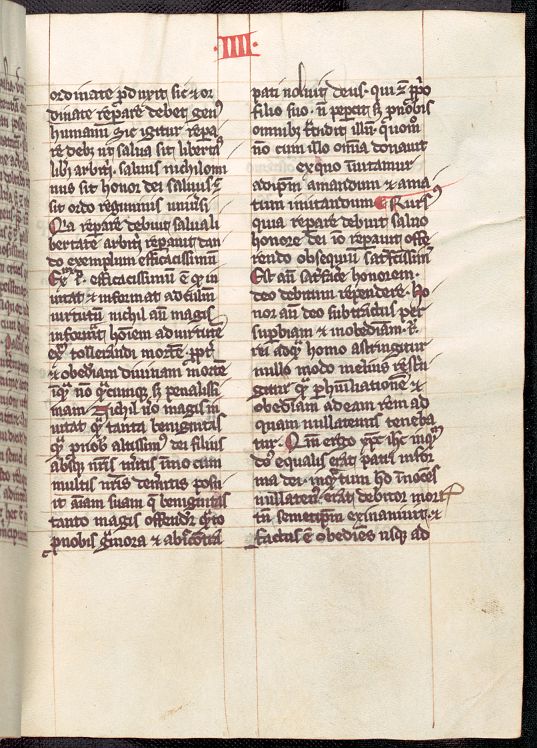 ·IIII·
ordinate produxit sic ⁊ or
dinate reparare debet genꝰ
humanū Sic igitur repa
re debꝫ ut salua sit libertaˢ
libi arbitrii. saluus nichilomi
nus sit honor dei saluus ꝛ
sit ordo regiminis uniuersi
Quia reparare debuit salua li
bertate arbitrii reparauit dan
do exemplum efficacissimū
efficacissimū ē qꝫ in
uitat ⁊ informat ad culmē
uirtutum nichil autē magis
informat hoīem ad uirtutē
exꝰ tollerandi mortē ꝓpt
⁊ obediam diuinam mortē
inqꝫ nō qꝫcunqꝫ sꝫ penalissi
mam Nichil uo magis in
uitat qꝫ tanta benignitas
qꝫ ꝓ nob altissimꝰ dei filiuˢ
absqꝫ nris meritis immo cum
multis nris demeritis posu
it aīam suam q benignitas
tanto magis offenditur quāto
ꝓ nobis grauiora ⁊ abiectiora
pati uoluit deus · qui ꝛ ꝓprio
filio suo · nō pepercit sꝫ ꝓ nobis
omnibꝫ tradidit illū · quomō
nō cum illo omīa donauit
ex quo inuitamur
ad ipm amandum ⁊ ama
tum imitandum Rursꝰ
quia reparare debuit saluo
honore dei iō reparauit offe
rendo obsequiū satisfactiuū
Est autē satisfacere honorem ·
deo debitum rependere · Ho
nor autē deo subtractus per
supbiam ⁊ inobediam ·
rei ad quā homo astringitur
nullo modo melius restin
gitur qꝫ ꝑ humiliationē ⁊
obediam ad eam rem ad
quam nullatenus teneba
tur · Qm ergo xpc ihc inqꝫtū
dꝰ equalis erat patri in for
ma dei · inqꝫtum hō inocēs
nullatenꝰ erat debitor mortis
tn semetipm exinaniuit · ⁊
factus ē obediēs usqꝫ ad